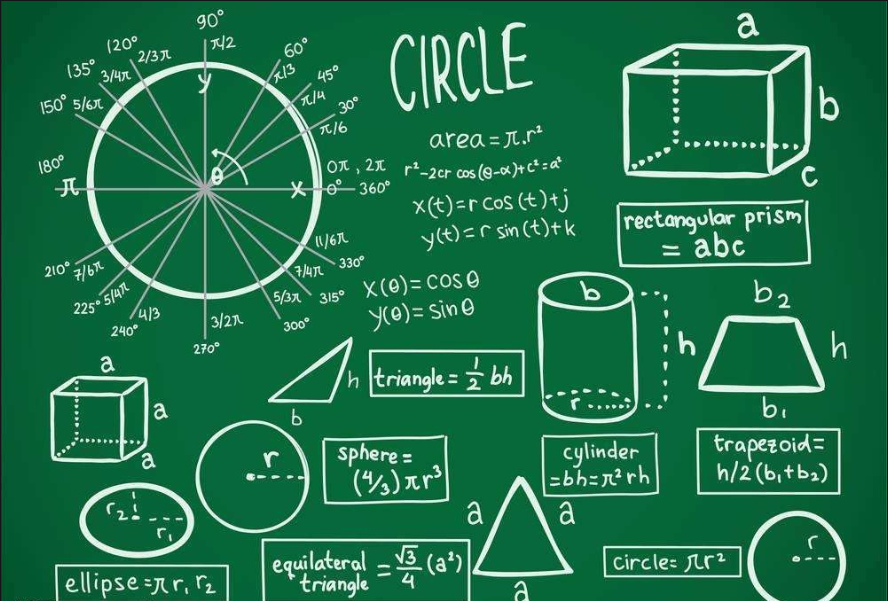 90°
120° 2/3π π/2 60°
135° 3/4π π/3 45°
150° 5/6π y π/4 30°
π/6
180° θ 0π, 2π
π x 0° 360°
210° 7/6π 11/6π 330°
225° 5/4π 7/4π 315°
240° 4/3 3/2π 5/3π 300°
270°
CIRCLE
area = π.r²
r²-2cr cos(θ-α)+c²=a²
x(t)=r cos(t)+j
y(t)=r sin(t)+k
x(θ)=cosθ
y(θ)=sinθ
a
b
c
rectangular prism
= abc
a
a
a
h
b
triangle = 1/2 bh
b
h
r
cylinder
=bh=π²rh
b₂
h
b₁
trapezoid=
h/2(b₁+b₂)
r
sphere=
(4/3)πr³
r₂
r₁
ellipse=π r₁ r₂
equilateral
triangle = √3/4 (a²)
a a
a
circle= πr²
r